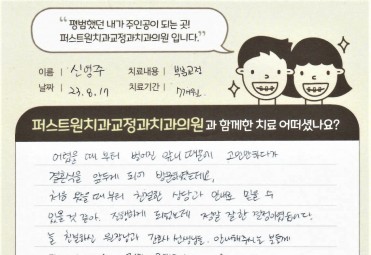 "평범했던 내가 주인공이 되는 곳!
퍼스트원치과교정과치과의원 입니다."
이름 신영주 치료내용 부분교정
날짜 23.8.17 치료기간 7개월
퍼스트원치과교정과치과의원과 함께한 치료 어떠셨나요?
어렸을 때부터 벌어진 앞니 때문에 고민만하다가
결혼식을 앞두게 되어 방문하였는데요,
처음 왔을 때부터 친절한 상담과 안내로 믿을 수
있을 것 같아. 진행하게 되었는데 정말 잘한 결정이었습니다.
늘 친절하신 원장님과 간호사 선생님들. 안내해주시는 분들께